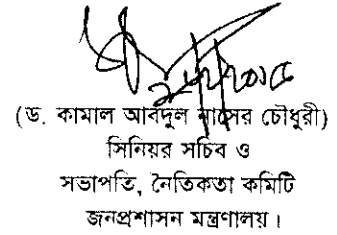 (ড. কামাল আবদুল নাসের চৌধুরী)
সিনিয়র সচিব ও
সভাপতি, নৈতিকতা কমিটি
জনপ্রশাসন মন্ত্রণালয়।